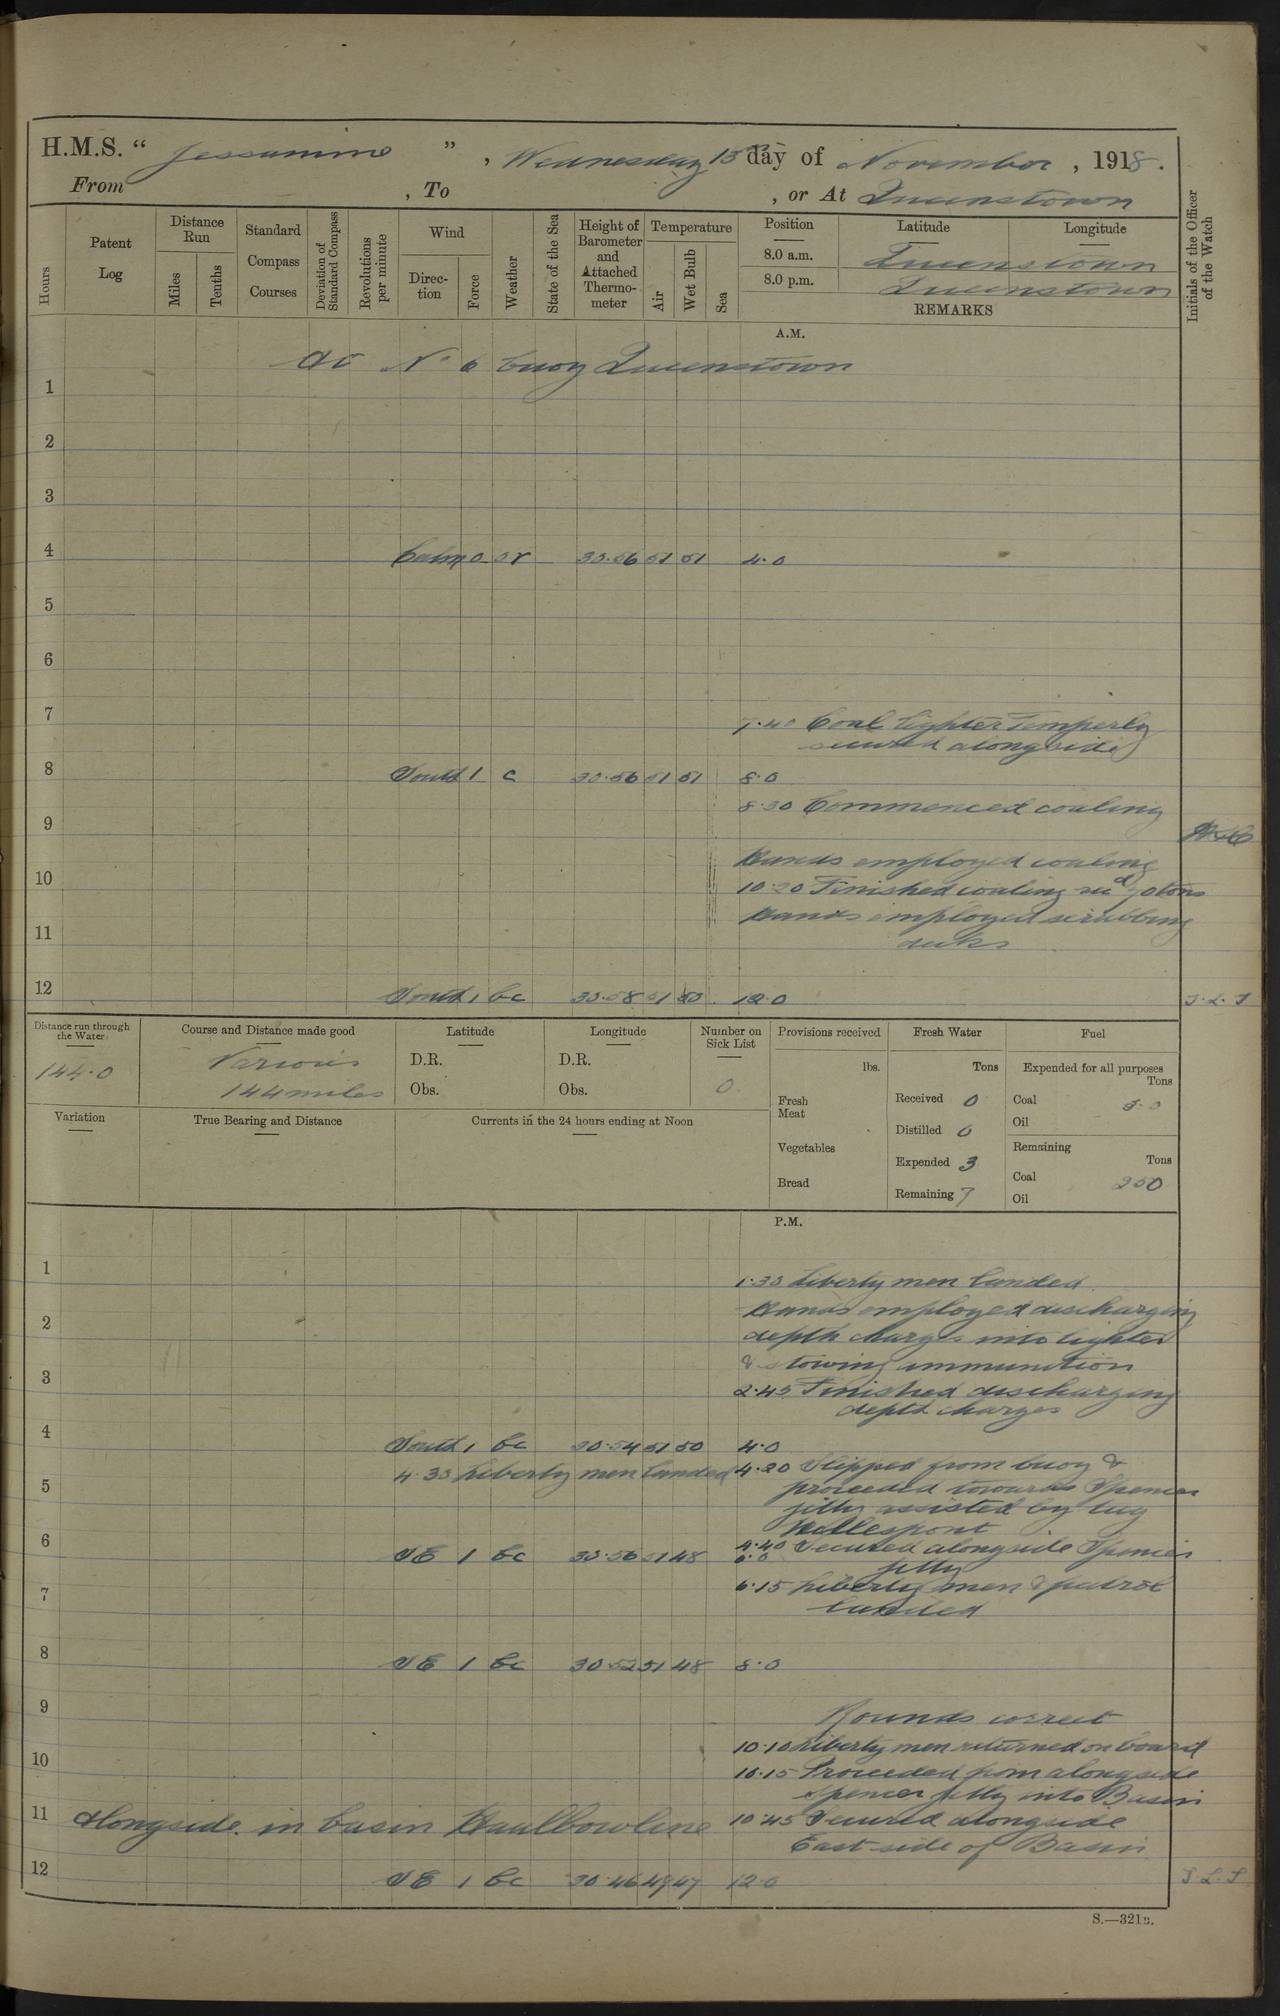 H.M.S. “ Jessamine ” , Wednesday 13th day of November , 1918 .
From , To , or At Queenstown
Hours
Patent Log
Distance Run
Miles
Tenths
Standard Compass Courses
Deviation of Standard Compass
Revolutions per minute
Wind
Direction
Force
Weather
State of the Sea
Height of Barometer and Attached Thermometer
Temperature
Air
Wet Bulb
Sea
Position Latitude Longitude
8.0 a.m. Queenstown
8.0 p.m. Queenstown
REMARKS
Initials of the Officer of the Watch
A.M.
At No 6 buoy Queenstown
1
2
3
4 Calm 0 or 30.56 51 51 4.0
5
6
7
7.40 Coal lighter Temperly
secured alongside
8 South 1 c 30.56 51 51 8.0
8.30 Commenced coaling
9
Hands employed coaling
10
10.20 Finished coaling recd 70 tons
Hands employed scrubbing
11
decks
12 South 1 bc 30.58 51 50 12.0
Distance run through the Water
144.0
Course and Distance made good
Various
144 miles
Latitude
D.R.
Obs.
Longitude
D.R.
Obs.
Number on Sick List
0
Provisions received
lbs.
Fresh Meat
Vegetables
Bread
Fresh Water
Tons
Received 0
Distilled 0
Expended 3
Remaining 7
Fuel
Expended for all purposes
Tons
Coal
Oil
Remaining
Tons
Coal 250
Oil
Variation
True Bearing and Distance
Currents in the 24 hours ending at Noon
P.M.
1
1.30 Liberty men landed
Hands employed discharging
2
depth charges into lighter
& stowing ammunition
3
2.45 Finished discharging
depth charges
4 South 1 bc 30.54 51 50 4.0
4.30 Liberty men landed
4.20 Slipped from buoy &
5
proceeded towards Spencer
jetty assisted by tug
Hellespont
4.40 Secured alongside Spencer
jetty
6 SE 1 bc 30.56 51 48 6.0
6.15 Liberty men & patrol
7
landed
8 SE 1 bc 30.52 51 48 8.0
9
Rounds correct
10.10 Liberty men returned on board
10
10.15 Proceeded from alongside
Spencer jetty into Basin
11 Alongside in basin Haulbowline
10.45 Secured alongside
East side of Basin
12 SE 1 bc 30.46 49 47 12.0
S.—321B.